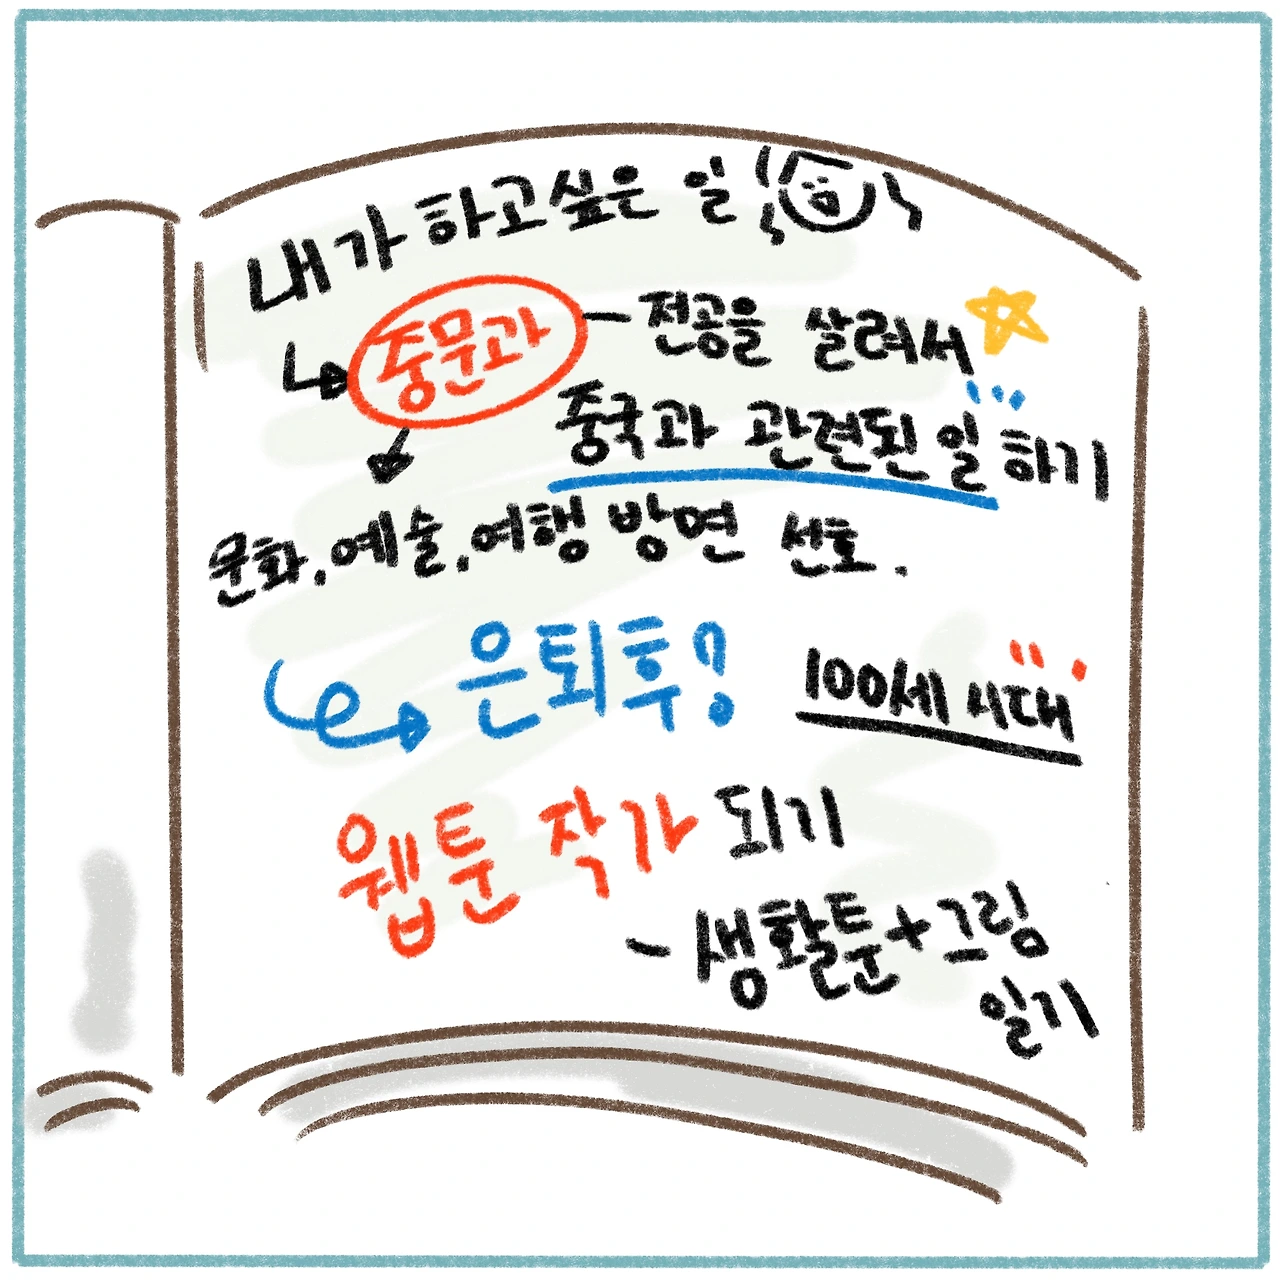 내가 하고싶은 일
중문과 - 전공을 살려서
중국과 관련된 일 하기
문화, 예술, 여행 방면 선호.
은퇴후! 100세 시대
웹툰 작가 되기
- 생활툰 + 그림
일기